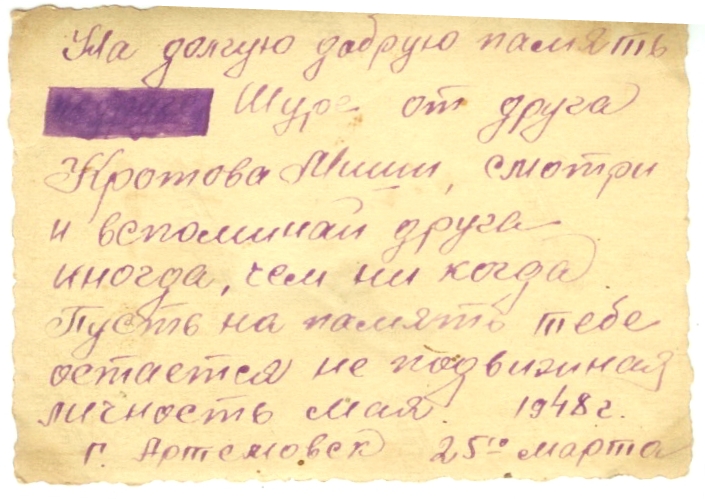 На долгую добрую память
Шуре от друга
Кротова Миши, смотри
и вспоминай друга
иногда, чем ни когда
Пусть на память тебе
остается не подвижная
личность мая 1948 г.
г. Артемовск 25го марта